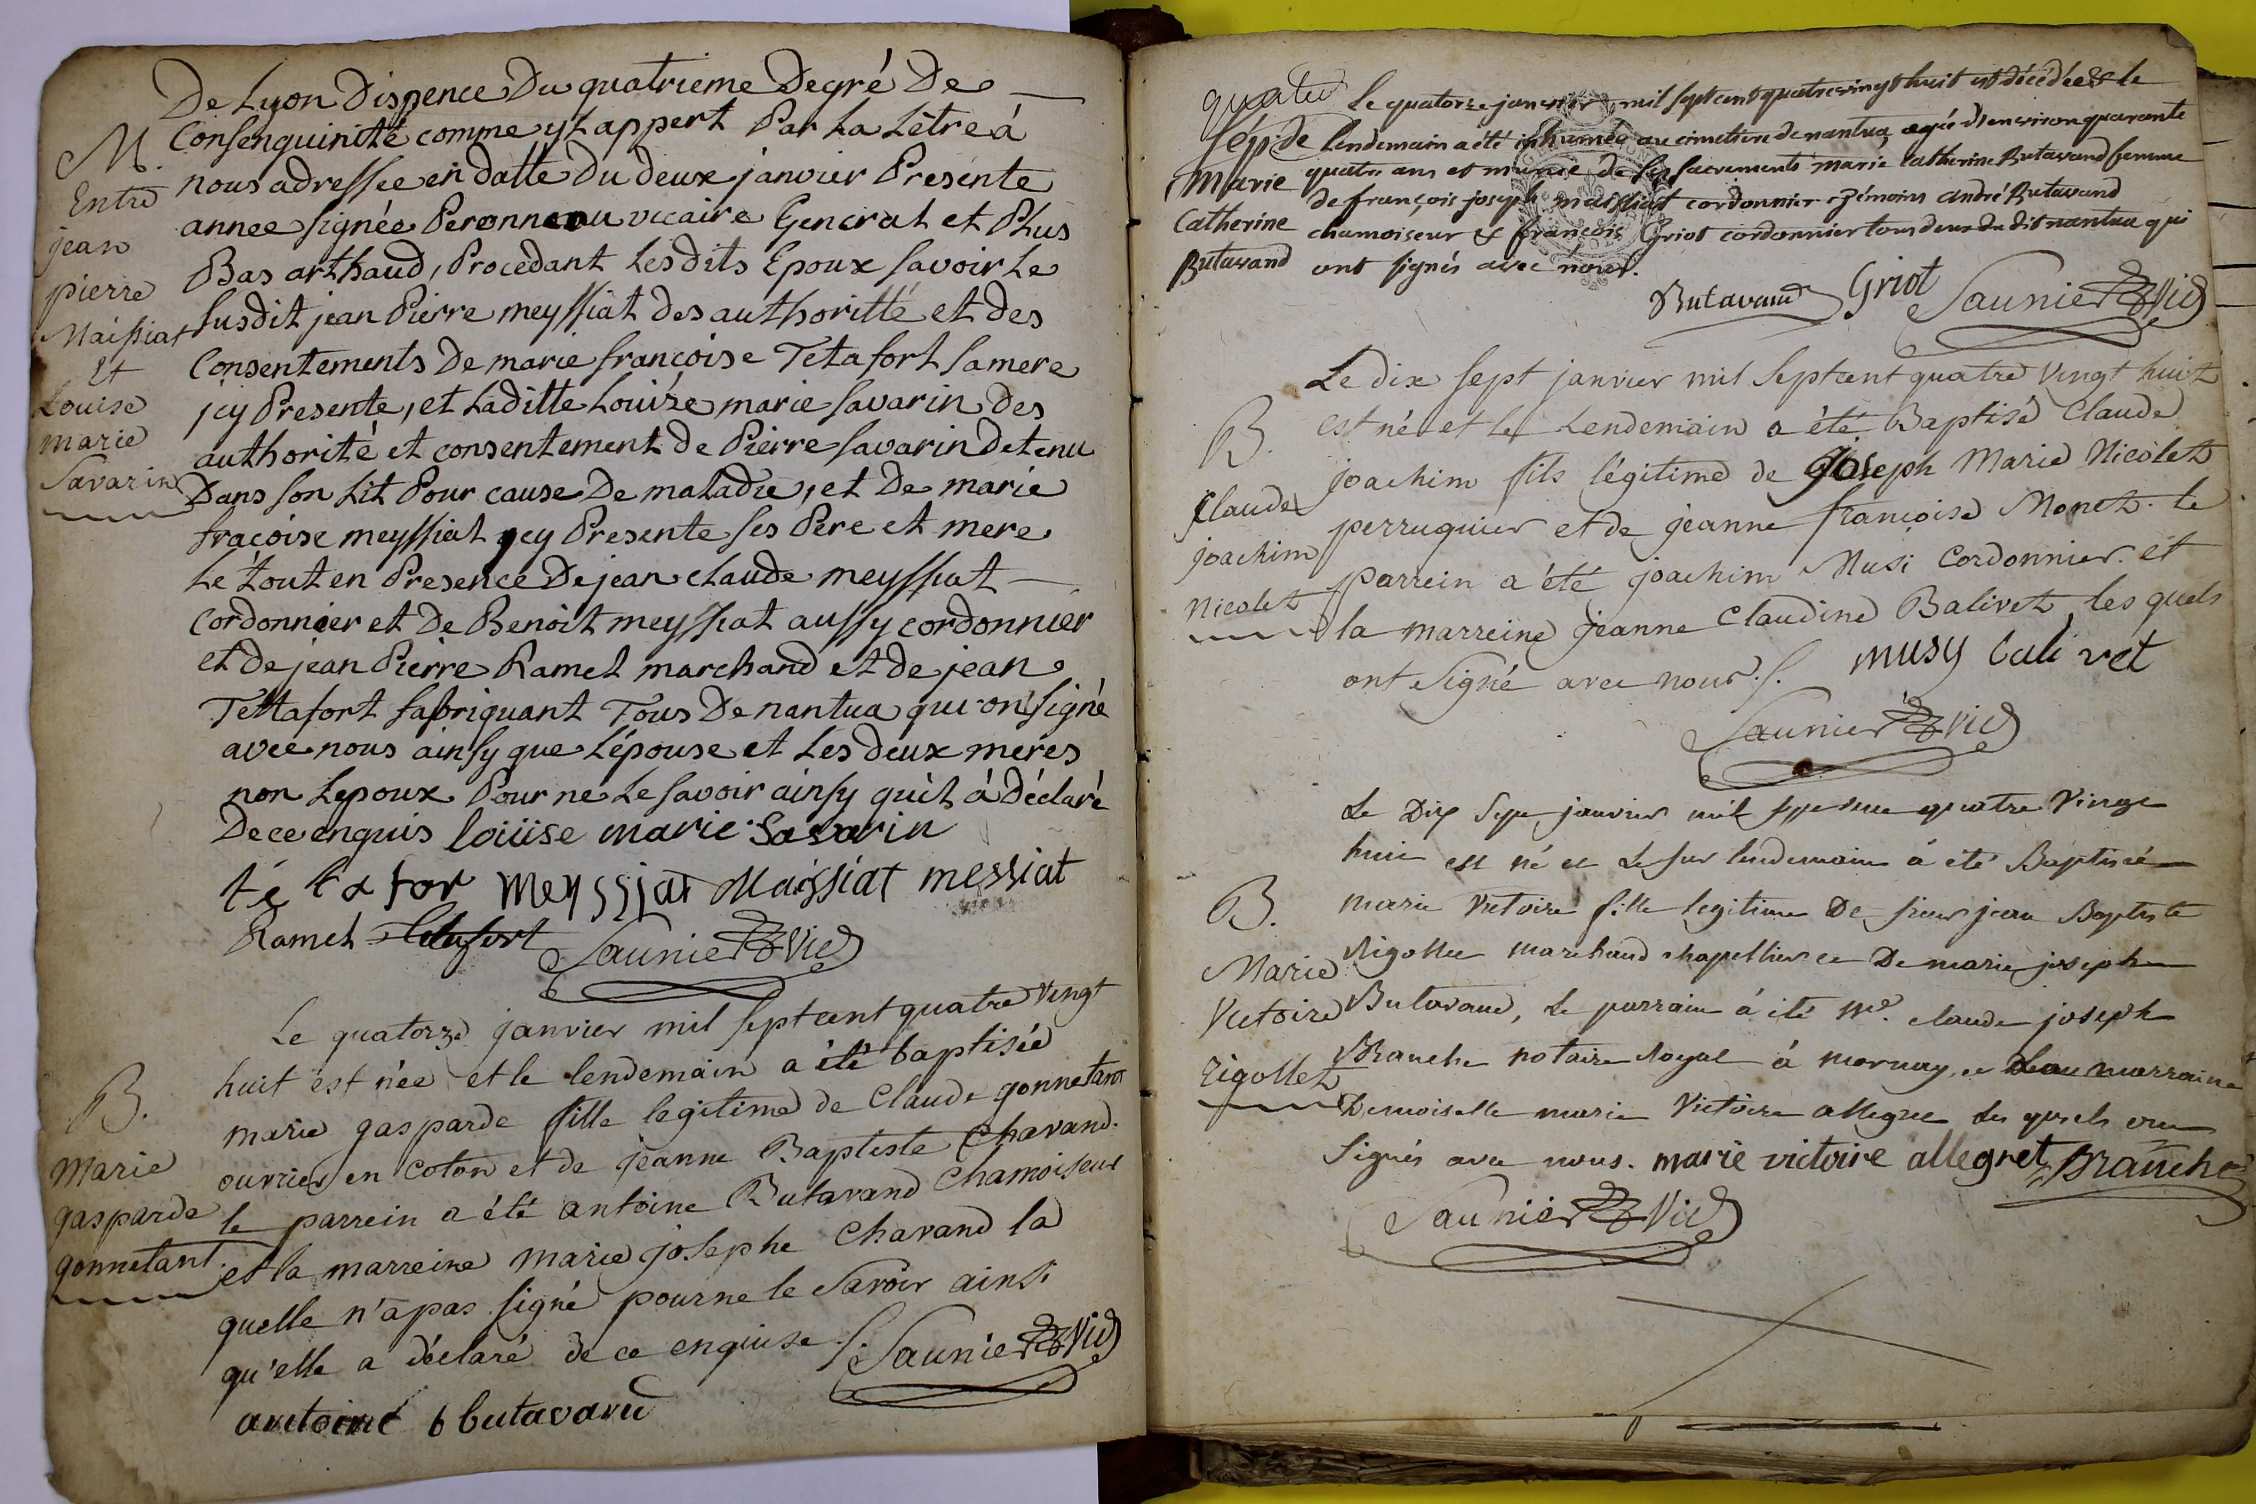 De Lyon Dispence Du quatrieme Degré De
Consenguinité comme yl appert Par La Lêtre á
nous adressée en datte Du deux janvier Presente
annee signée Peronneau vicaire General et Plus
Bas arthaud, Procedant Lesdits Epoux savoir Le
susdit jean Pierre meyssiat des authoritté et des
Consentements De marie françoise Tetafort sa mere
jcy Presente, et Laditte Louize marie savarin Des
authorité et consentement de Pierre savarin detenu
Dans son Lit Pour cause De maladie, et De marie
fracoise meyssiat ycy Presente ses Pere et mere
Le tout en Presence De jean claude meyssiat
Cordonnier et De Benoit meyssiat aussy cordonnier
et de jean Pierre Ramel marchand et de jean
Tettafort fabriquant Tous De nantua qui ont signé
avec nous ainsy que L'épouse et Les deux meres
non Lepoux Pour ne Le savoir ainsy quil á déclaré
De ce enquis loüise marie savarin
té ta for meyssiat Maissiat messiat
Ramel Tetafort Saunier Vic
M.
Entre
jean
pierre
Maissiat
Et
Louise
marie
Savarin
Le quatorze janvier mil septcent quatre vingt
huit est née et le lendemain a été baptisée
marie gasparde fille legitime de Claude gonnetant
ouvrier en coton et de jeanne Baptiste Chavand.
le parrein a été antoine Butavand Chamoiseur
et la marreine marie josephe Chavand la
quelle n'a pas signé pour ne le savoir ainsi
qu'elle a déclaré de ce enquise ./. Saunier Vic
antoine b butavand
B.
Marie
gasparde
gonnetant.
quatre
sép. de
Marie
Catherine
Butavand
Le quatorze janvier mil sept cent quatre vingt huit est décédée & le
lendemain a été inhumée au cimetiere de nantua, agée d'environ quarante
quatre ans et munie de ses sacrements marie catherine Butavand femme
de françois joseph maissiat cordonnier, témoins andré Butavand
chamoiseur & françois Griot cordonnier tous deux dudit nantua qui
ont signés avec nous.
Butavand Griot Saunier Vic
Le dix sept janvier mil septcent quatre vingt huit
est né et le Lendemain a été Baptisé Claude
joachim fils légitime de joseph Marie Nicolet
perruquier et de jeanne françoise Monet. le
parrein a été joachim Musi Cordonnier. et
la marreine jeanne Claudine Balivet, les quels
ont signé avec nous ./. musy balivet
Saunier Vic
B.
Claude
joachim
Nicolet
Le Dix sept janvier mil sept cent quatre Vingt
huit est né et le sur lendemain á été Baptisée
marie Victoire fille legitime De sieur jean Baptiste
Rigollet marchand chapellier et De marie joseph
Butavand, Le parrain á été Me. claude joseph
Branche notaire Royal á mornay, et La marraine
Demoiselle marie Victoire allegret les quels ont
Signés avec nous. marie victoire allegret Branche
Saunier Vic
B.
Marie
Victoire
rigollet